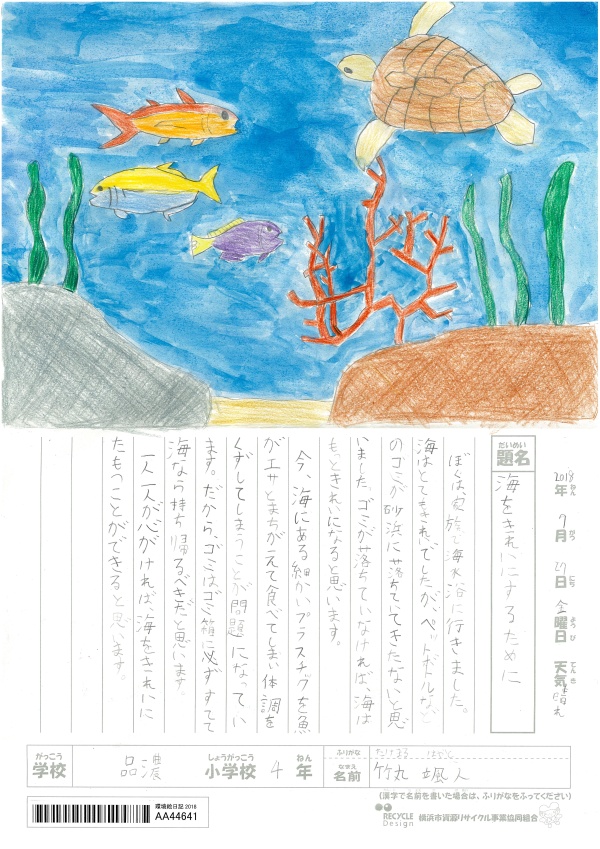 2018年ねん 7月がつ 27日にち 金曜日ようび 天気てんき 晴れ
だいめい
題名
海をきれいにするために
ぼくは、家族で海水浴に行きました。
海はとてもきれいでしたが、ペットボトルなど
のゴミが砂浜に落ちていてきたないと思
いました。ゴミが落ちていなければ、海は
もっときれいになると思います。
今、海にある細かいプラスチックを魚
がエサとまちがえて食べてしまい体調を
くずしてしまうことが問題になってい
ます。だから、ゴミはゴミ箱に必ずすてて
海なら持ち帰るべきだと思います。
一人一人が心がければ、海をきれいに
たもつことができると思います。
がっこう しょうがっこう ねん ふりがな たけまる はやと
学校 品濃 小学校 4 年 なまえ 名前 竹丸 颯人
(漢字で名前を書いた場合は、ふりがなをふってください)
環境絵日記 2018
AA44641
RECYCLE Design 横浜市資源リサイクル事業協同組合